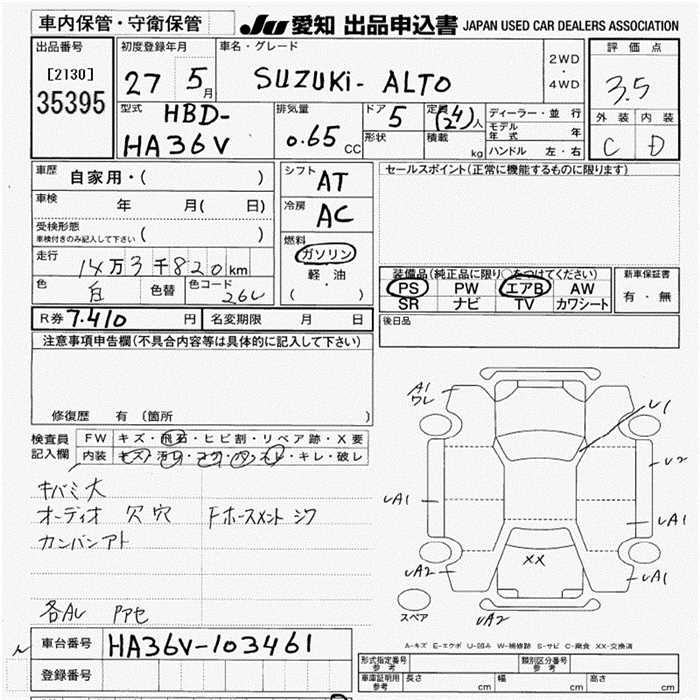 車内保管・守衛保管 JU 愛知 出品申込書 JAPAN USED CAR DEALERS ASSOCIATION
出品番号
[2130]
35395
初度登録年月
27 5月
車名・グレード
SUZUKI- ALTO
2WD
・
4WD
評価点
3.5
外装 内装
C D
型式
HBD-
HA36V
排気量
0.65 CC
ドア 5
形状
定員 (2)4 人
積載 kg
ディーラー・並行
モデル年式 年
ハンドル 左・右
車歴 自家用・( )
車検 年 月( 日)
受検形態
車検付きのみ記入して下さい ( )
走行 14万3千820km
色 白 色替 色コード 26U
シフト AT
冷房 AC
燃料
ガソリン
軽・油
( ・ )
セールスポイント(正常に機能するものに限ります)
装備品(純正品に限り○をつけてください)
PS PW エアB AW
SR ナビ TV カワシート
新車保証書
有・無
後日品
R券 7.410 円 名変期限 月 日
注意事項申告欄(不具合内容等は具体的に記入して下さい)
修復歴 有(箇所 )
検査員
記入欄
FW キズ・飛石・ヒビ割・リペア跡・X要
内装 キズ・汚レ・コゲ・穴・スレ・キレ・破レ
キバミ大
オーディオ 欠 穴 Fホースメント シワ
カンバンアト
各AL
A1
ワレ
U1
U2
UA1
UA1
UA2
XX
UA1
UA2
スペア
A-キズ E-エクボ U-凹み W-補修跡 S-サビ C-腐食 XX-交換済
車台番号 HA36V-103461
登録番号
形式指定番号
参考
類別区分番号
参考
車庫証明用
参考
長さ cm 幅 cm 高さ cm